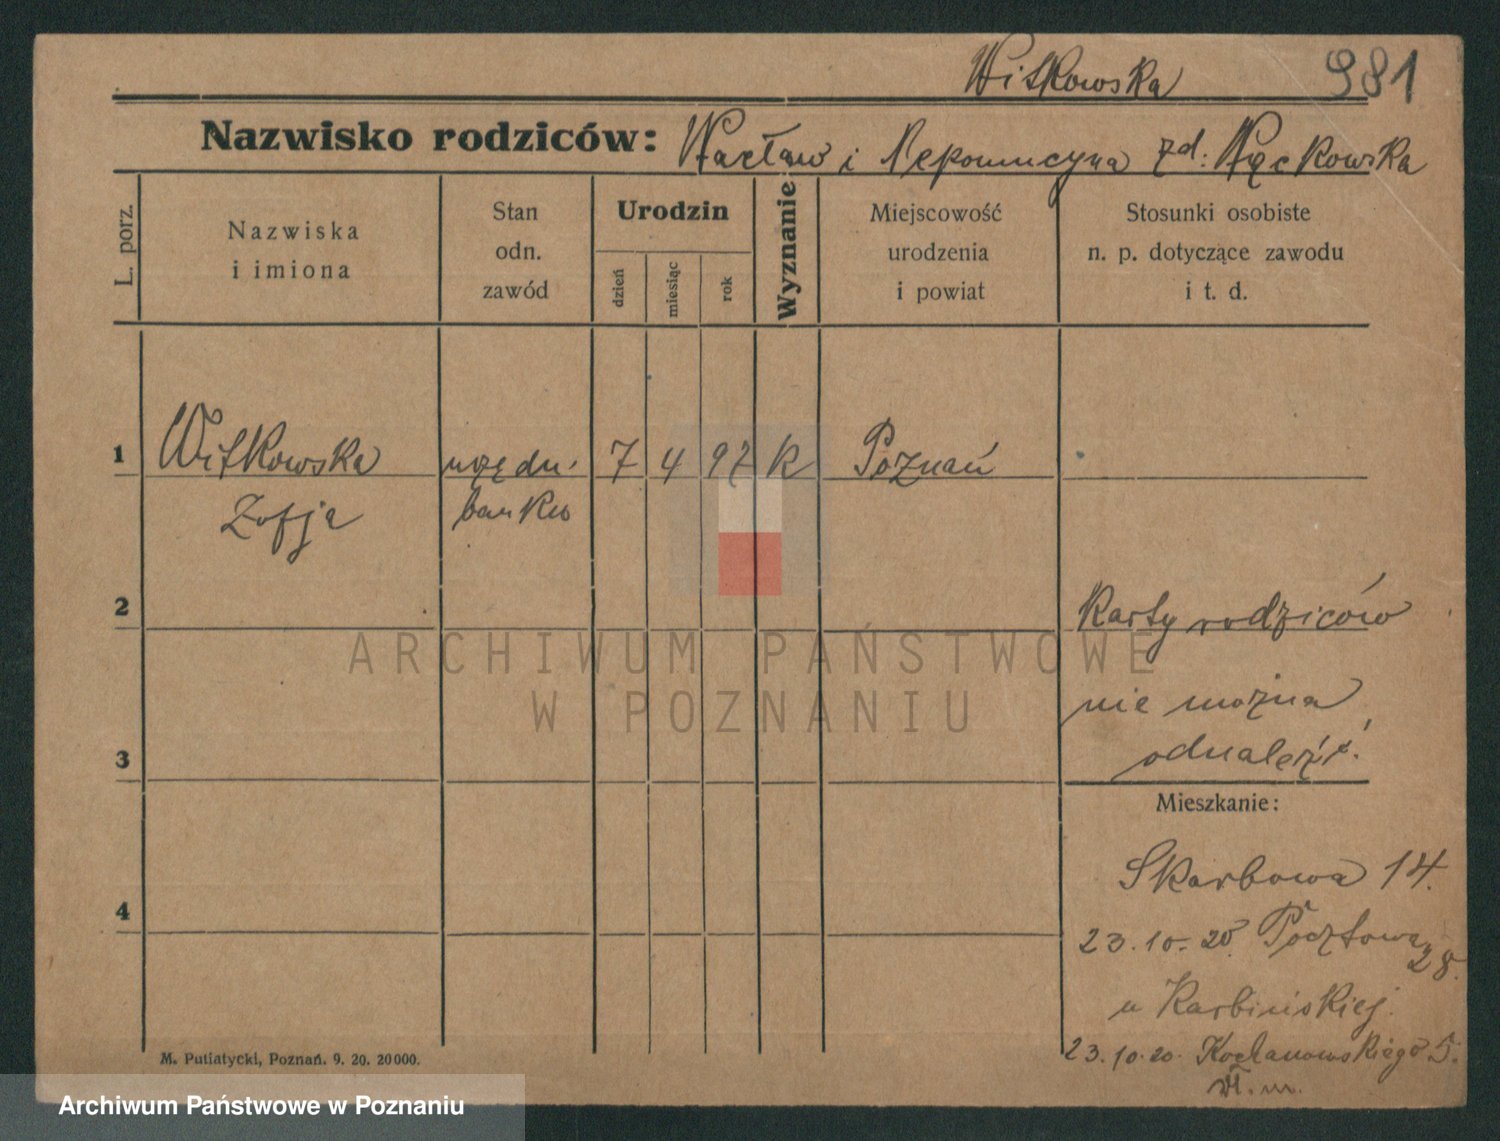 Witkowska 981
Nazwisko rodziców: Wacław i Nepomucyna zd: Węckowska
L. porz.
Nazwiska
i imiona
Stan
odn.
zawód
Urodzin
dzień
miesiąc
rok
Wyznanie
Miejscowość
urodzenia
i powiat
Stosunki osobiste
n. p. dotyczące zawodu
i t. d.
1 Witkowska urzędn. 7 4 97 k Poznań
Zofja banku
2 Karty rodziców
nie można
3 odnaleźć.
Mieszkanie:
Skarbowa 14.
4 23.10.20 Pocztowa 28.
u Karbińskiej.
23.10.20. Kochanowskiego 5.
M. Putiatycki, Poznań. 9. 20. 20000.
ARCHIWUM PAŃSTWOWE
W POZNANIU
Archiwum Państwowe w Poznaniu